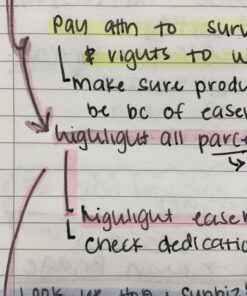 pay attn to surv
& rights to u
make sure produ
be bc of easer
highlight all parce
highlight easer
check dedicatio